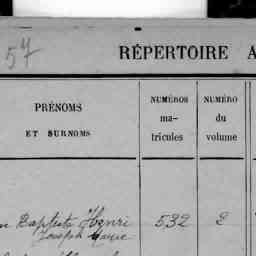 57
RÉPERTOIRE A
PRÉNOMS
ET SURNOMS
NUMÉROS
ma-
tricules
NUMÉRO
du
volume
n Baptiste Henri 532 2
Joseph Marie